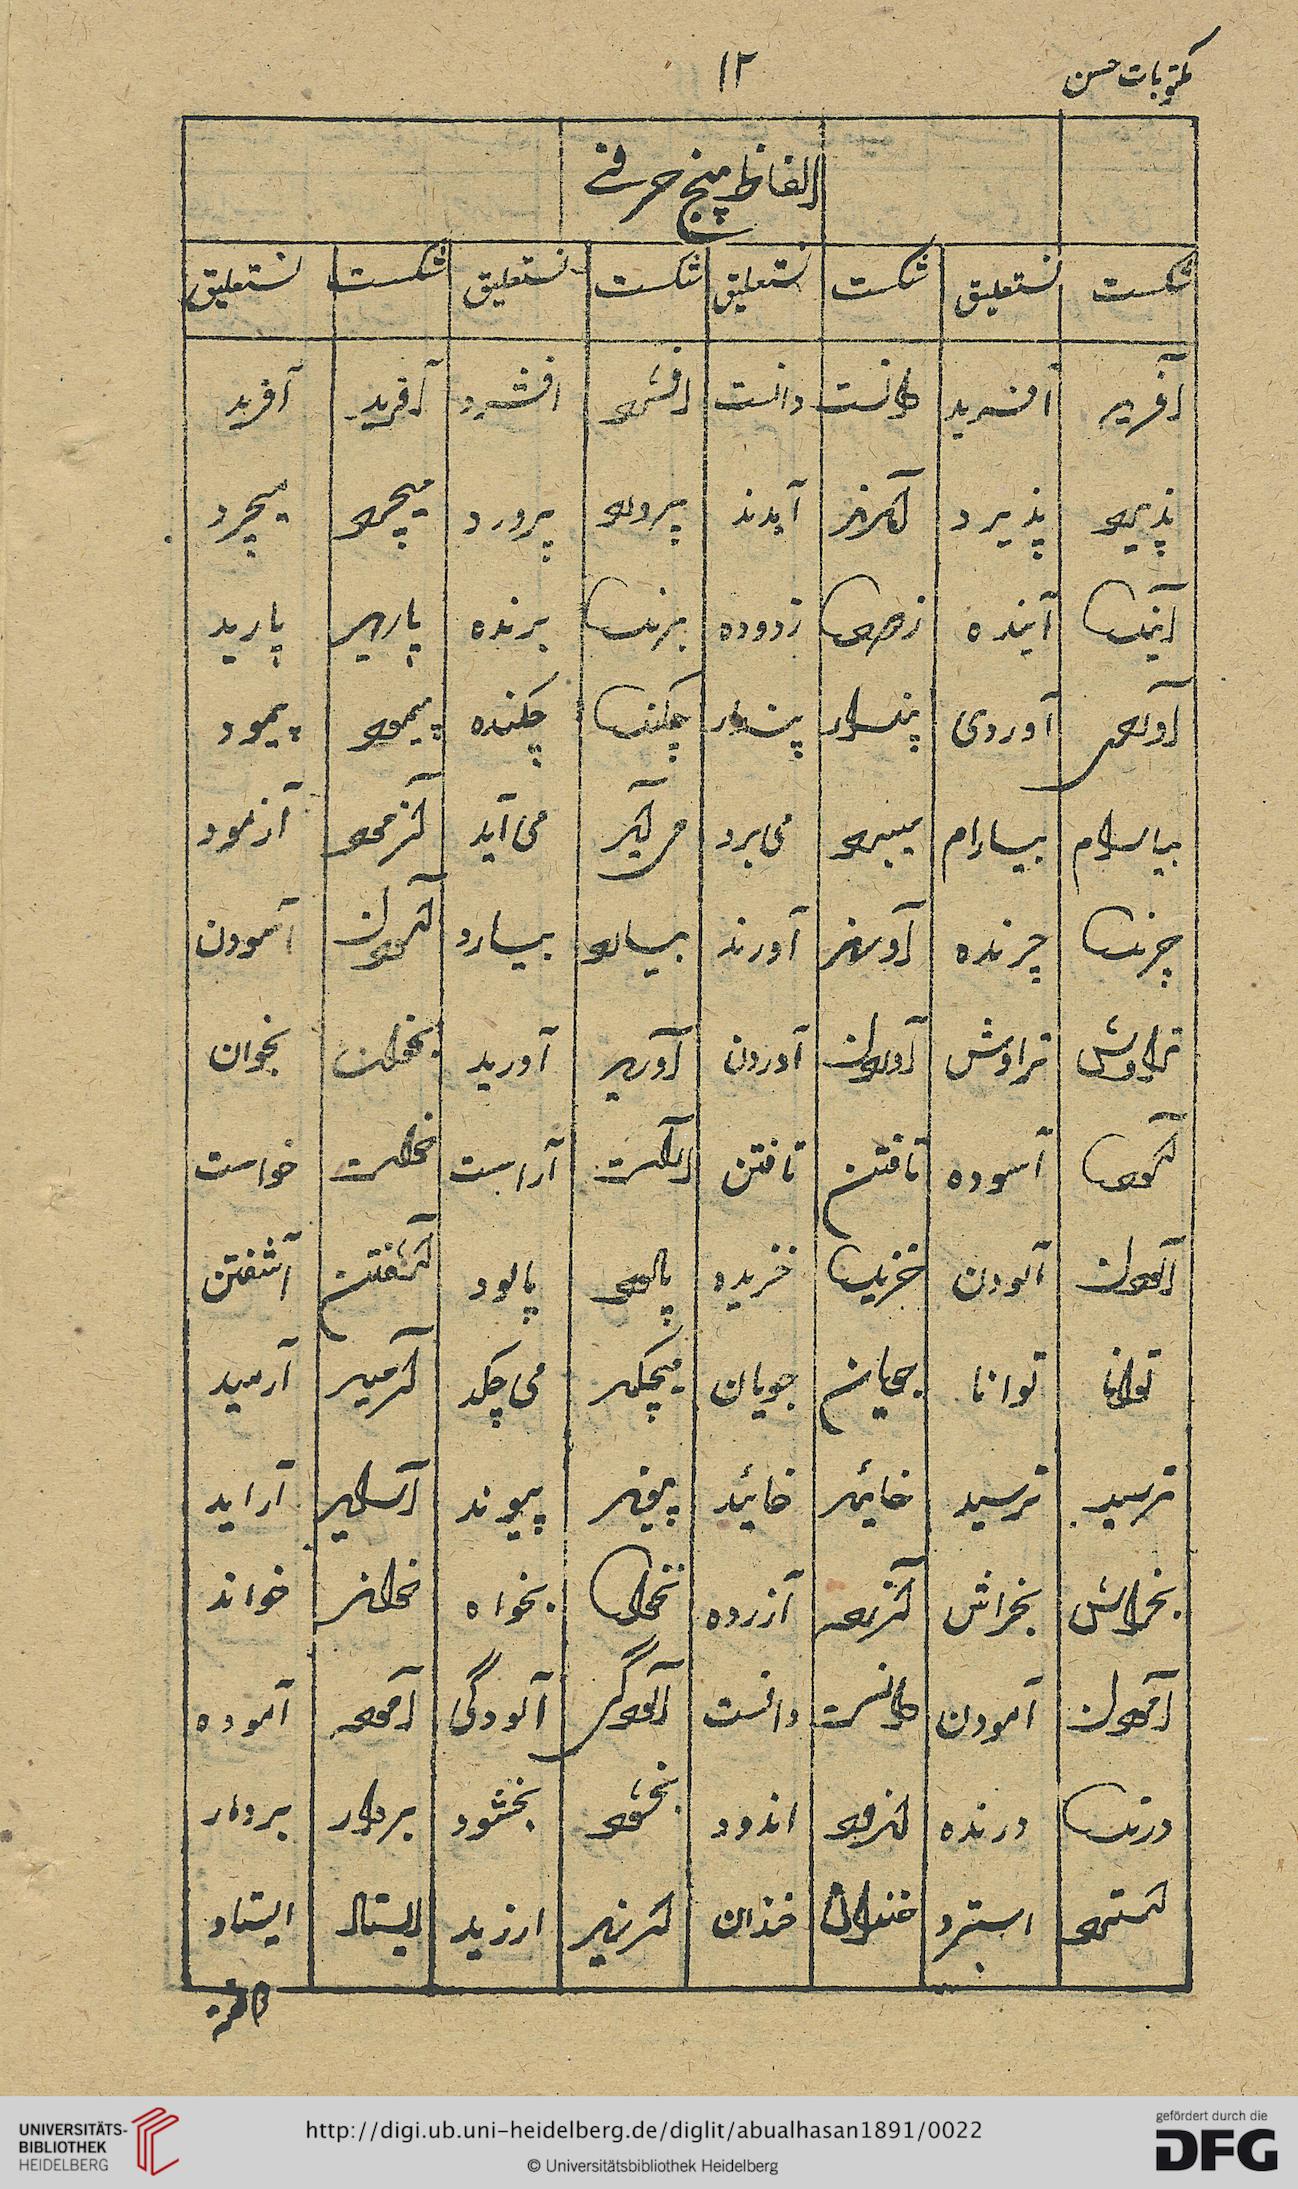 مکتوبات حسن
۱۲
الفاظ پنج حرفی
شکست نستعلیق شکست نستعلیق شکست نستعلیق شکست نستعلیق
آفرید آفرید دانست دانست افشرد افشرد آفرید آفرید
پذیرد پذیرد آیدند آیدند پرورد پرورد میچرد میچرد
آینده آینده زدوده زدوده برنده برنده پارید پارید
آوردی آوردی پندار پندار چکنده چکنده پیمود پیمود
بیارام بیارام میبرد می برد می آید می آید آزمود آزمود
چرنده چرنده آورند آورند بیارد بیارد آمودن آسودن
تراوش تراوش آوردن آوردن آورید آورید بخوان بخوان
آسوده آسوده تافتن تافتن آراست آراست خواست خواست
آلودن آلودن خریده خریده پالود پالود آشفتن آشفتن
توانا توانا جویان جویان میچکد می چکد آرمید آرمید
ترسید ترسید خائید خائید پیوند پیوند آراید آراید
بخراش بخراش آزرده آزرده بخواه بخواه خواند خواند
آمودن آمودن دانست دانست آلودگی آلودگی آموده آموده
درنده درنده اندود اندود بخشود بخشود بردار بردار
استرد استرد خندان خندان ارزید ارزید ایستاد ایستاد
UNIVERSITÄTS-
BIBLIOTHEK
HEIDELBERG
http://digi.ub.uni-heidelberg.de/diglit/abualhasan1891/0022
© Universitätsbibliothek Heidelberg
gefördert durch die
DFG